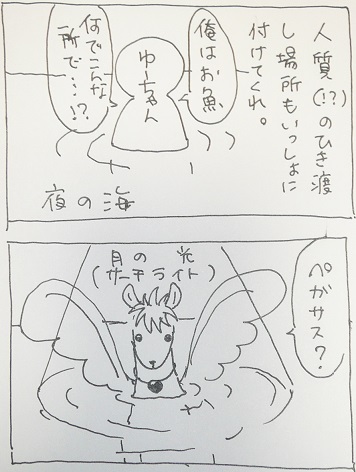 人質(!?)のひき渡
し場所もいっしょに
付けてくれ。
俺はお魚
ゆーちゃん
何でこんな
所で…!?
夜の海
ペガサス?
月の光
(サーチライト)